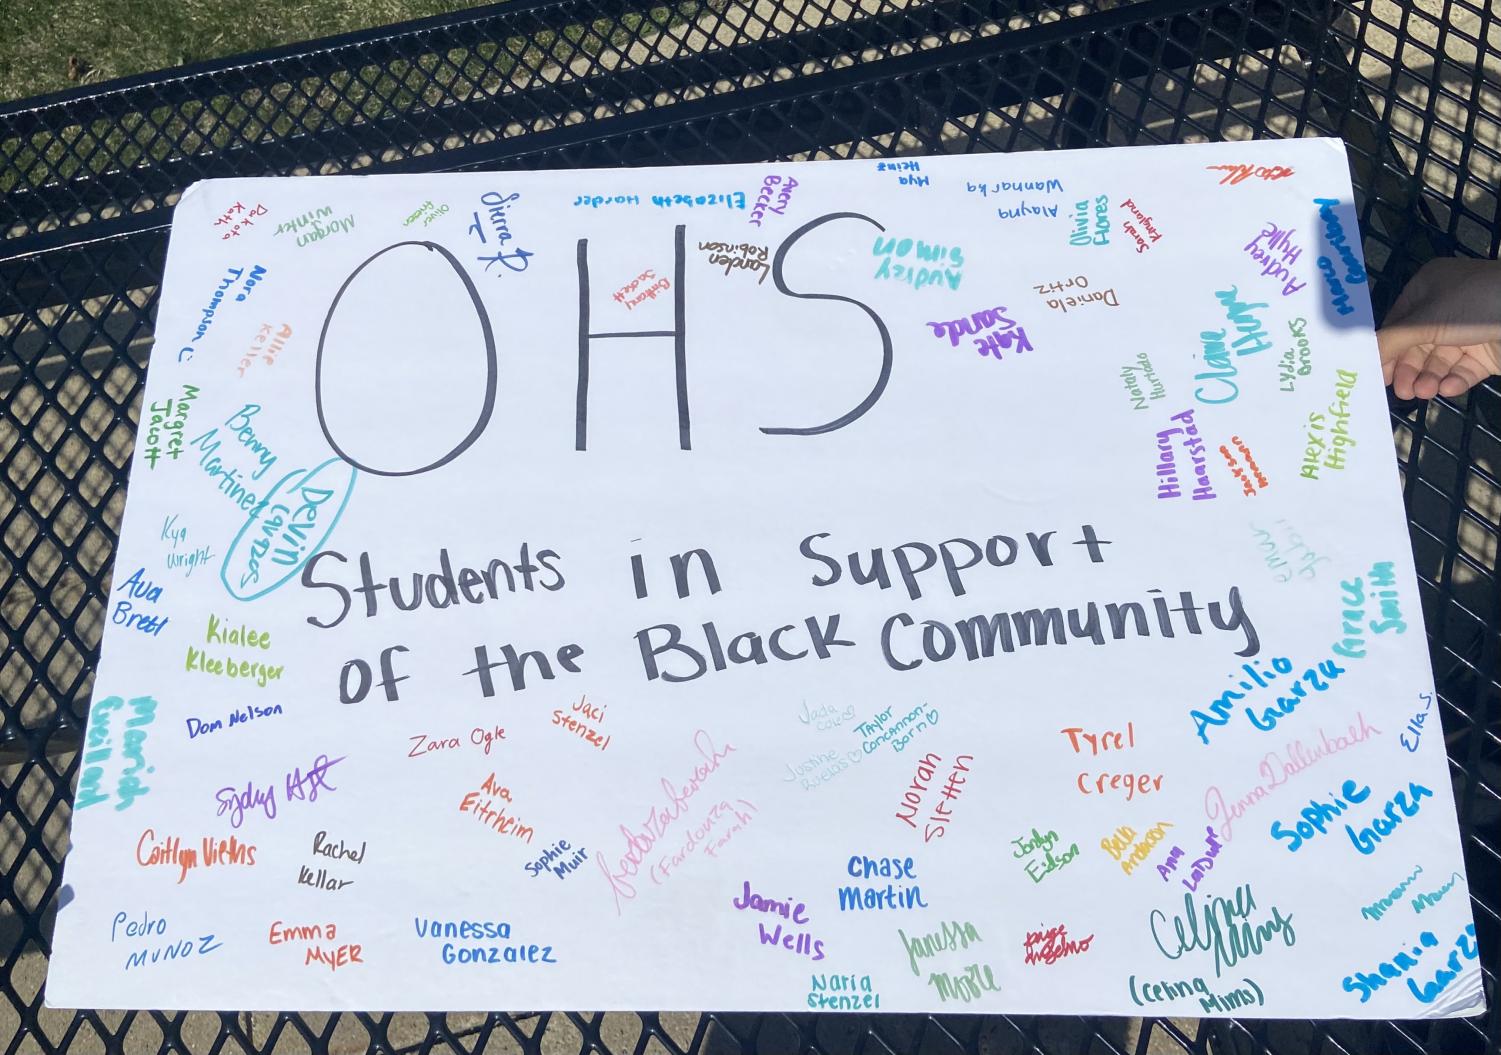 OHS
Students in Support
of the Black Community
Dakota
Kath
Morgan
Winter
Oliver
Sierra R.
Elizabeth Harder
Avery
Becker
Mya
Heinz
Alayna
Wannarka
Olivia
Flores
Sarah
Kingland
Audrey
Hylle
Marco
Nora
Thompson C:
Allie
Keller
Brittany
Landen
Robinson
Audrey
Simon
Kate
Sande
Daniela
Ortiz
Claire
Lydia
Brooks
Nataly
Hurtado
Alexis
Highfield
Hillary
Haarstad
Jackson
Margret
Jacott
Benny
Martinez
Devin
Cavazos
Kya
Wright
Ava
Bretl
Kialee
Kleeberger
Grace
Smith
Amilio
Garza
Ella S.
Dom Nelson
Zara Ogle
Jaci
Stenzel
Jada
Cole
Taylor
Concannon-
Born
Justine
Tyrel
Creger
Jenna Dallenbach
Sophie
Garza
Sydny
Ava
Eitrheim
Norah
Sletten
(Fardowza
Farah)
Caitlyn Vieths
Rachel
Kellar
Sophie
Muir
Chase
Martin
Jordyn
Eidson
Bella
Anderson
Ana
LaDure
Pedro
Munoz
Emma
Myer
Vanessa
Gonzalez
Jamie
Wells
Janessa
Moore
Paige
Anselmo
Celina Mims
(Celina
Mims)
Naria
Stenzel
Shania
Garza